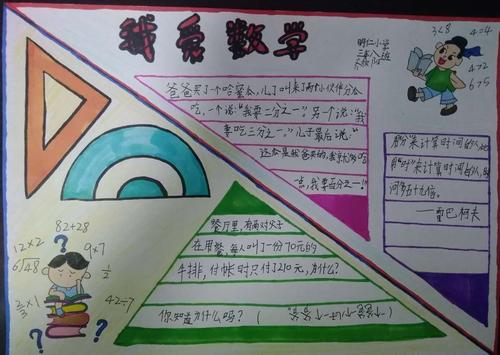 我爱数学
3<8
4=4
4>2
6>5
明仁小学
三年八班
爸爸买了一个哈蜜瓜,儿子叫来了两个小伙伴分瓜
吃,一个说:"我要二分之一。"另一个说:"我
要吃三分之一。"儿子最后说:"
这瓜是我爸买的,我要
点,我要百分之一!"
用"分"来计算时间的人,比
用"时"来计算时间的人,时
间多五十九倍。
——雷巴柯夫
82+28
12×2
9×7
6)48
1/2
2/3×1
42÷7
?
?
?
餐厅里,有两对夫子
在用餐,每人叫了一份70元的
牛排,付帐时只付了210元,为什么?
你知道为什么吗?(